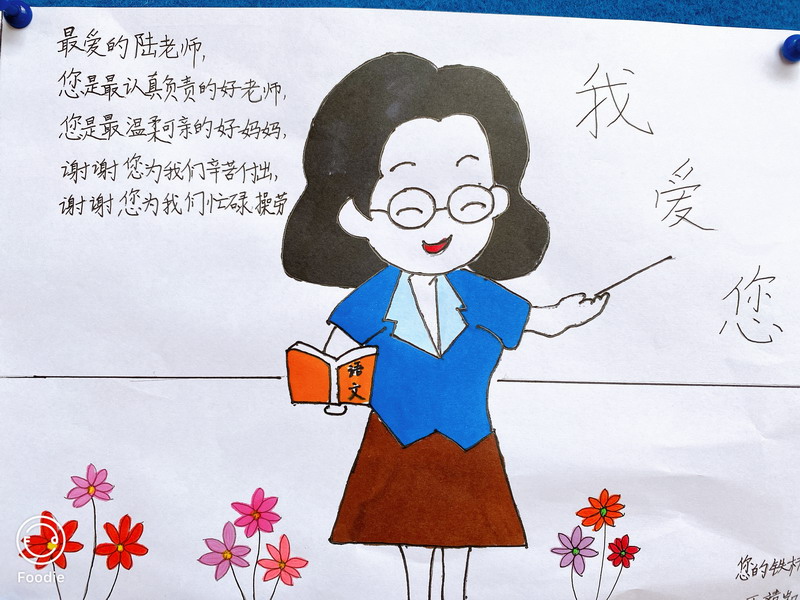 最爱的陆老师,
您是最认真负责的好老师,
您是最温柔可亲的好妈妈,
谢谢您为我们辛苦付出,
谢谢您为我们忙碌操劳
我
爱
您
语
文
您的铁
Foodie